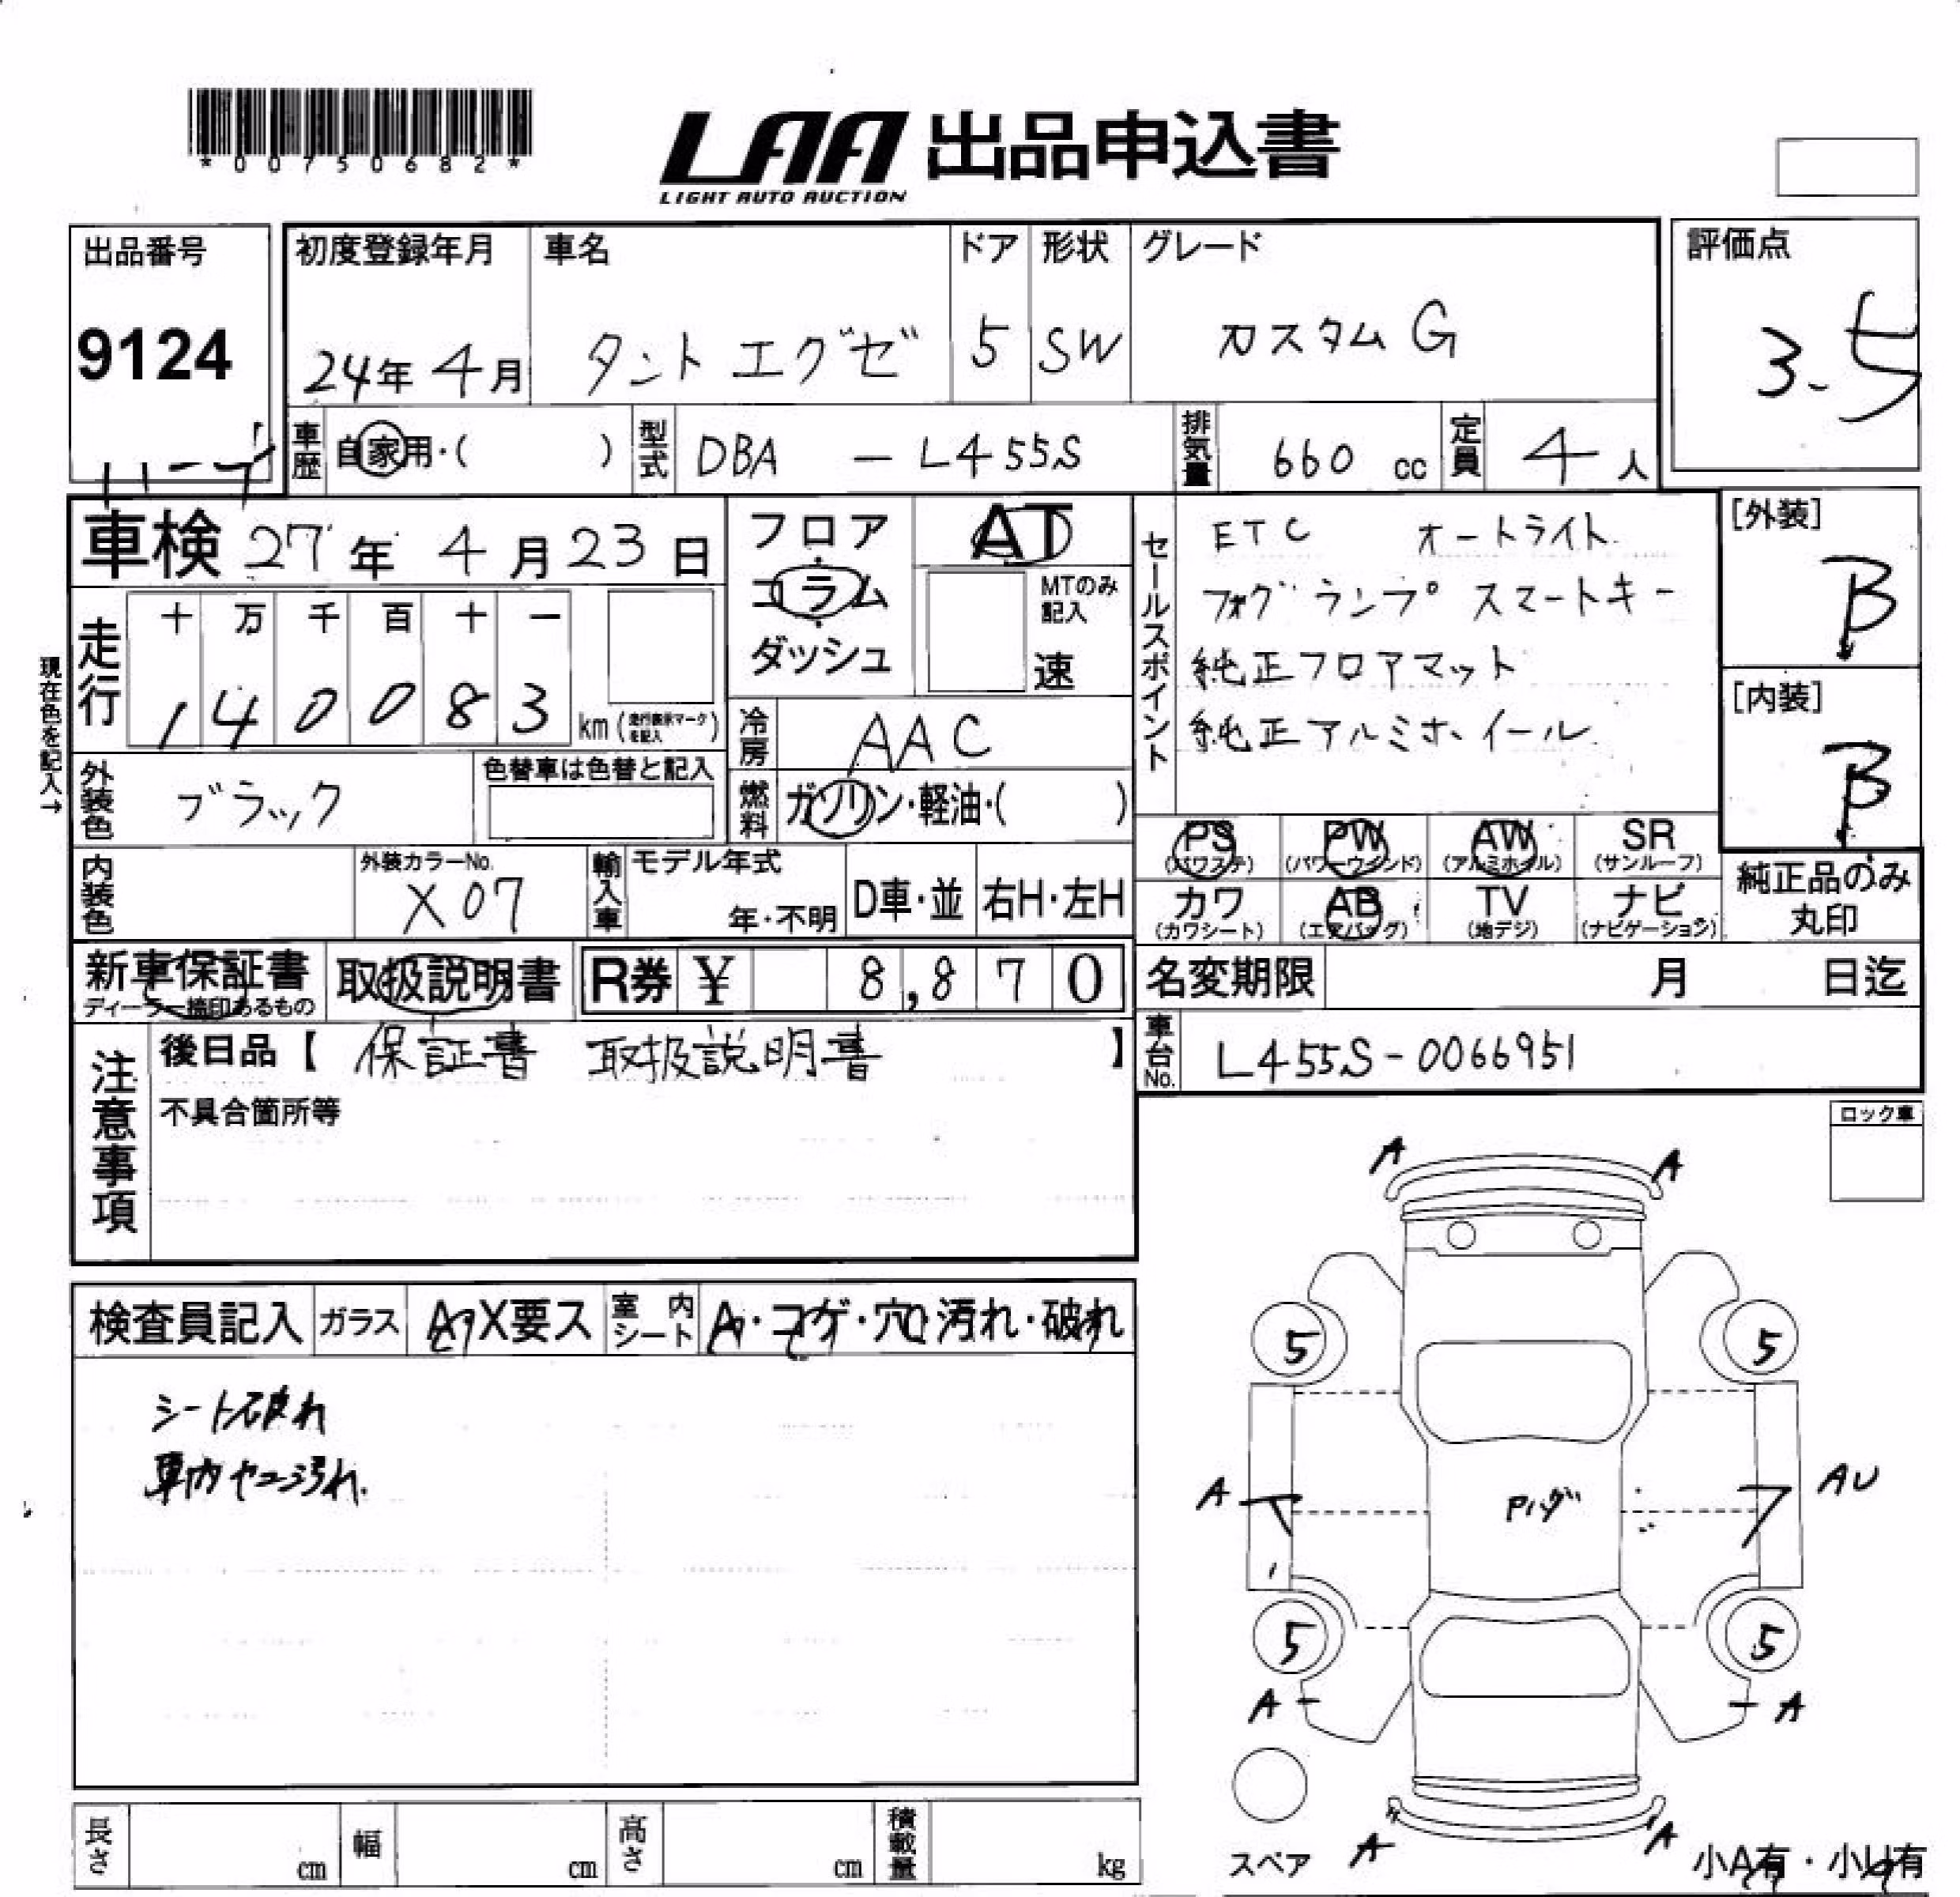 *00750682*
LAA 出品申込書
LIGHT AUTO AUCTION
出品番号
9124
初度登録年月
24年 4月
車名
タントエグゼ
ドア
5
形状
SW
グレード
カスタムG
評価点
3.5
車歴 自家用・( )
型式 DBA - L455S
排気量 660 cc
定員 4人
車検 27年 4月23日
フロア
コラム
ダッシュ
AT
MTのみ記入
速
セールスポイント
ETC オートライト
フォグランプ スマートキー
純正フロアマット
純正アルミホイール
[外装]
B
[内装]
B
現在色を記入→
走行
十 万 千 百 十 一
1 4 0 0 8 3 km (走行表示マークを記入)
冷房 AAC
燃料 ガソリン・軽油・( )
外装色 ブラック
色替車は色替と記入
内装色
外装カラーNo.
X07
輸入車
モデル年式
年・不明
D車・並
右H・左H
PS (パワステ)
PW (パワーウィンド)
AW (アルミホイル)
SR (サンルーフ)
カワ (カワシート)
AB (エアバッグ)
TV (地デジ)
ナビ (ナビゲーション)
純正品のみ
丸印
新車保証書
ディーラー捺印あるもの
取扱説明書
R券 ¥ 8,870
名変期限 月 日迄
車台No. L455S-0066951
注意事項
後日品【 保証書 取扱説明書 】
不具合箇所等
ロック車
検査員記入
ガラス A・X要ス
室内シート A・コゲ・穴・汚れ・破れ
シート破れ
車内ヤニ汚れ
A A
5 5
A AU
5 5
A A
A A
スペア
小A有・小U有
長さ cm
幅 cm
高さ cm
積載量 kg